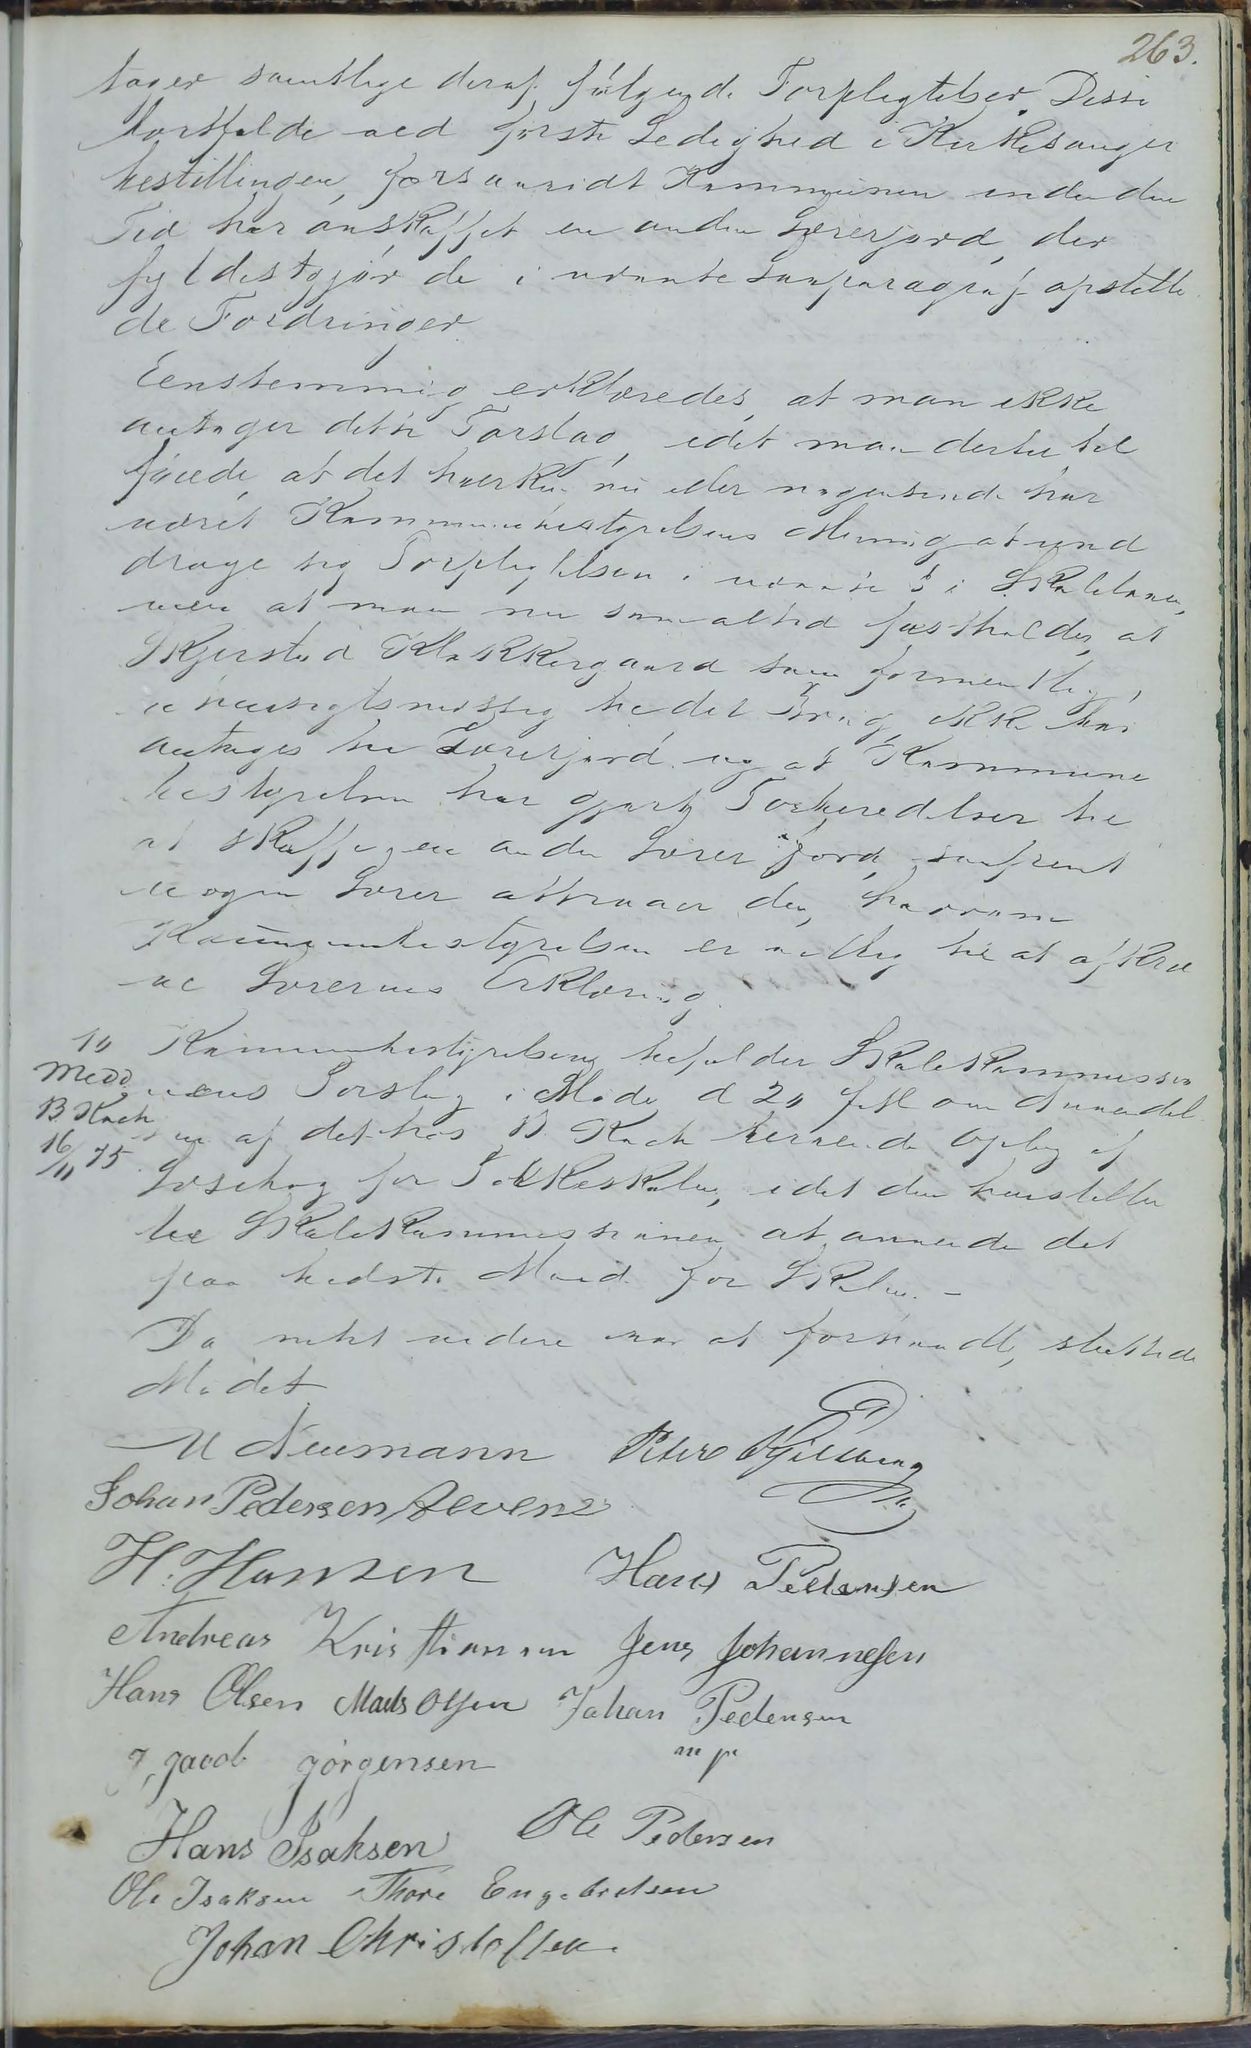 263.
tager samtlige deraf følgende Forpligtelser. Disse
bortfalde ved første Ledighed i Kirkesanger
bestillingen, forsaavidt Kommunen inden den
Tid har anskaffet en anden Lærerjord, der
fyldestgjør de i nævnte Lovparagraf opstille
de Fordringer.
Eenstemmig erklæredes, at man ikke
antager dette Forslag, idet man dertil til
føiede, at det hverken nu eller nogensinde har
været Kommunebestyrelsens Mening at und
drage sig Forpligtelsen i nævnte § i Skoleloven,
men at man nu som altid fastholder, at
Skjerstad Klokkergaard som formentlig
uhensigtsmæssig til det Brug, ikke bør
antages til Lærerjord og at Kommune
bestyrelsen har gjort Forberedelser til
at skaffe en anden Lærerjord, saafremt
nogen Lærer attraaer den, hvorom
Kommunebestyrelsen er villig til at afkræ
ve Lærernes Erklæring.
10 Kommunebestyrelsen bifalder Skolekommissio
Medd. nens Forslag i Møde d 20 f M om Anvendel
B. Koch sen af det hos B. Koch beroende Oplag af
16/11 75 Læsebog for Folkeskolen, idet den henstiller
til Skolekommissionen at anvende det
paa bedste Maade for Skolen. -
Da intet videre var at forhandle, sluttede
Mødet
M Neumann Peter
Johan Pedersen Levens
H. Hansen Hans Pedersen
Andreas Kristiansen Jens Johannesen
Hans Olsen Mads Olsen Johan Pedersen
m p
J, Jacob Jørgensen
Hans Isaksen Ole Pedersen
Ole Isaksen Thore Engebretsen
Johan Christoffersen